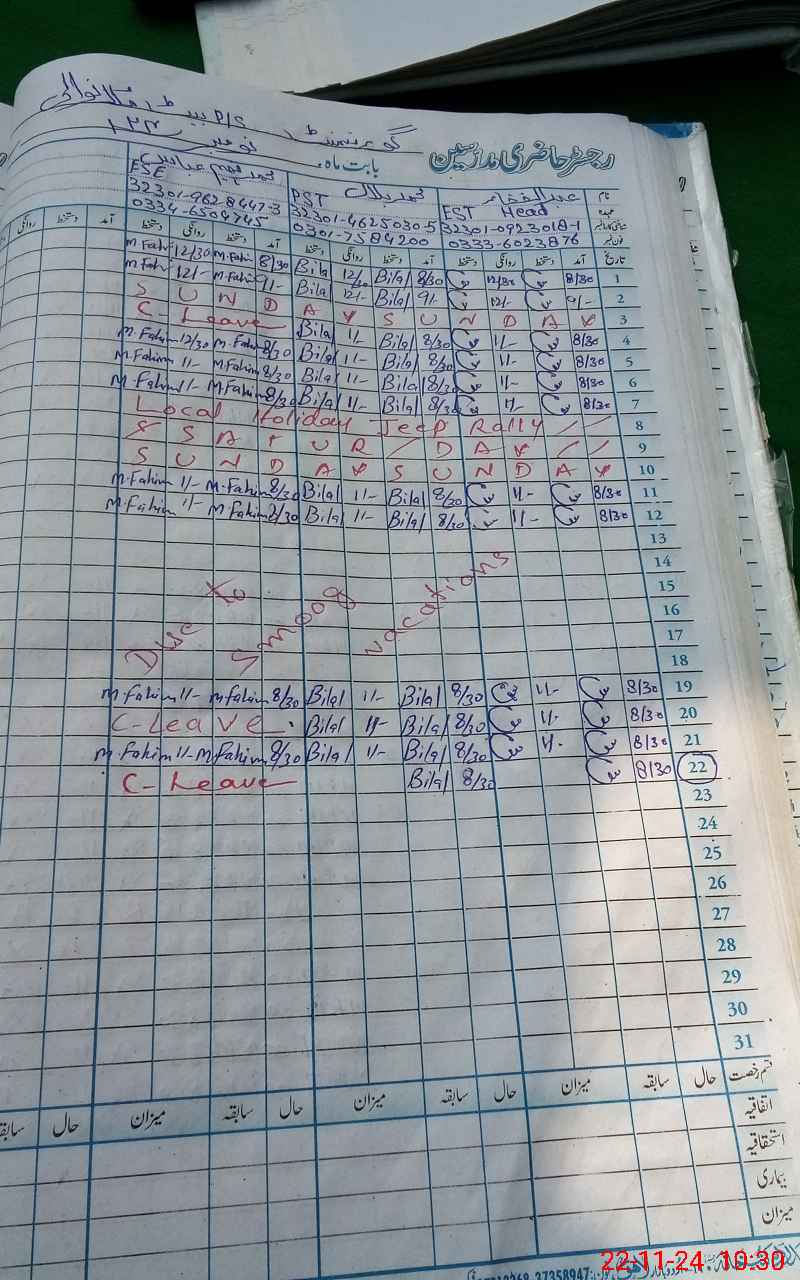 گورنمنٹ P/S
رجسٹر حاضری مدرسین بابت ماہ نومبر
نام عبدالغفار محمد بلال محمد فہیم عباس
عہدہ EST Head PST ESE
شناختی کارڈ نمبر 32301-0923018-1 32301-4625030-5 32301-9628447-3
فون نمبر 0333-6023876 0301-7584200 0334-6504745
تاریخ آمد دستخط روانگی دستخط آمد دستخط روانگی دستخط آمد دستخط روانگی دستخط آمد دستخط روانگی
M.Fahi 12/30 M.Fahi 8/30 Bilal 12/30 Bilal 8/30 12/30 8/30 1
M.Fahi 12/- M.Fahi 9/- Bilal 12/- Bilal 9/- 12/- 9/- 2
S U N D A Y S U N D A Y 3
C-Leave Bilal 11- Bilal 8/30 11- 8/30 4
M.Fahim 12/30 M.Fahim 8/30 Bilal 11- Bilal 8/30 11- 8/30 5
M.Fahim 11- M.Fahim 8/30 Bilal 11- Bilal 8/30 11- 8/30 6
M.Fahim 11- M.Fahim 8/30 Bilal 11- Bilal 8/30 11- 8/30 7
Local Holiday Jeep Rally // 8
S A T U R / D A Y // 9
S U N D A Y S U N D A Y 10
M.Fahim 11- M.Fahim 8/30 Bilal 11- Bilal 8/30 11- 8/30 11
M.Fahim 11- M.Fahim 8/30 Bilal 11- Bilal 8/30 11- 8/30 12
13
14
15
16
17
Due to Smoog vacations
18
M.Fahim 11- M.Fahim 8/30 Bilal 11- Bilal 8/30 11- 8/30 19
C-Leave Bilal 11- Bilal 8/30 11- 8/30 20
M.Fahim 11- M.Fahim 8/30 Bilal 11- Bilal 8/30 11- 8/30 21
C-Leave Bilal 8/30 8/30 22
23
24
25
26
27
28
29
30
31
قسم رخصت حال سابقہ میزان حال سابقہ میزان حال سابقہ میزان حال سابقہ
اتفاقیہ
استحقاقیہ
بیماری
میزان
37358947
22-11-24 10:30